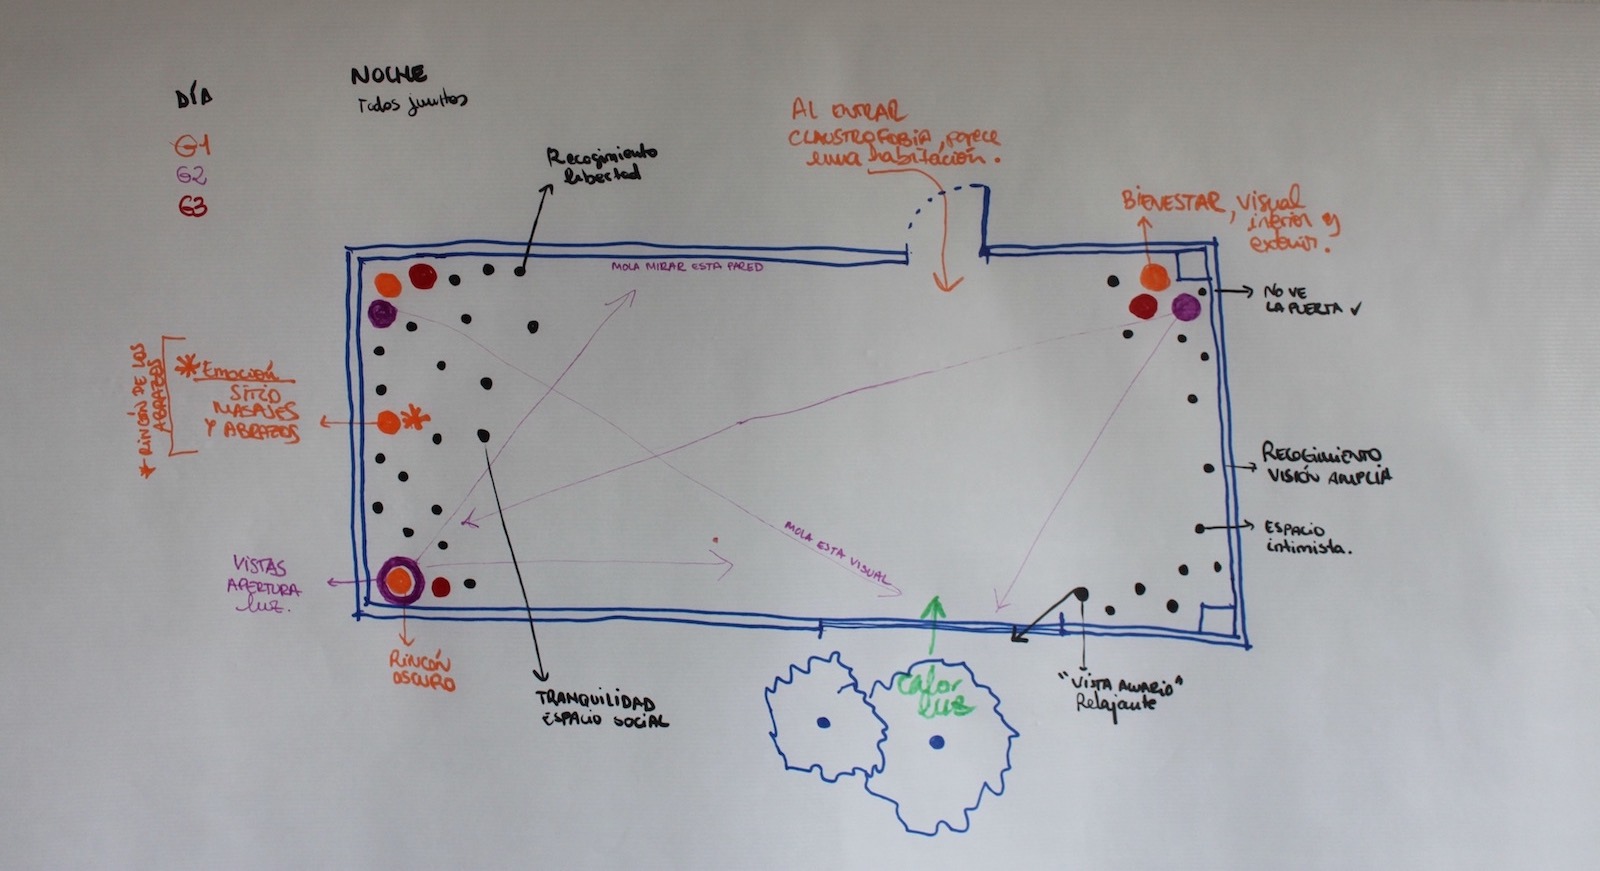 DÍA
G1
G2
G3
NOCHE
Todos juntos
Recogimiento
libertad
AL ENTRAR
CLAUSTROFOBIA, parece
una habitación.
BIENESTAR, visual
interior y
exterior.
MOLA MIRAR ESTA PARED
NO VE
LA PUERTA ✓
* RINCÓN DE LOS
ABRAZOS
* Emoción
SITIO
MASAJES
Y ABRAZOS
*
RECOGIMIENTO
VISIÓN AMPLIA
ESPACIO
intimista.
MOLA ESTA VISUAL
VISTAS
APERTURA
luz.
RINCÓN
OSCURO
TRANQUILIDAD
ESPACIO SOCIAL
Calor
luz
"VISTA ACUARIO"
Relajante